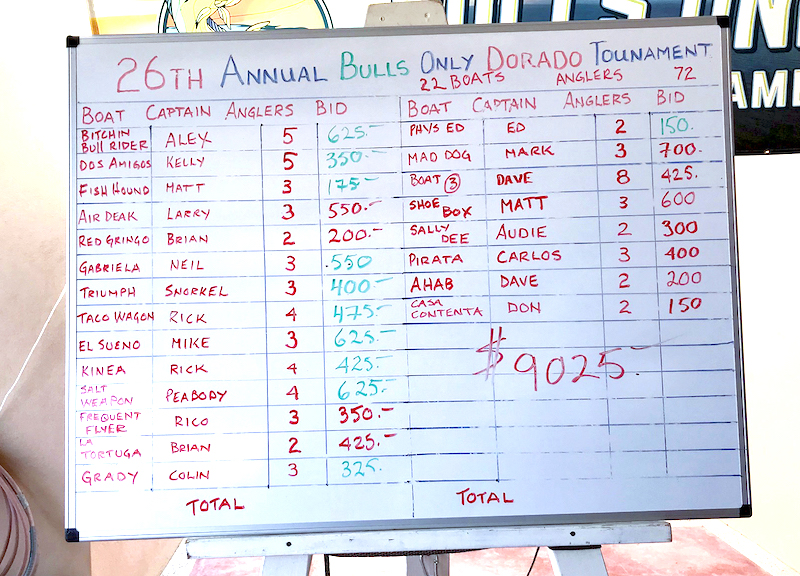 26TH ANNUAL BULLS ONLY DORADO TOUNAMENT
22 BOATS ANGLERS 72
BOAT CAPTAIN ANGLERS BID
BITCHIN BULL RIDER ALEX 5 625.-
DOS AMIGOS KELLY 5 350.-
FISH HOUND MATT 3 175-
AIR DEAK LARRY 3 550.-
RED GRINGO BRIAN 2 200.-
GABRIELA NEIL 3 .550
TRIUMPH SNORKEL 3 400-
TACO WAGON RICK 4 475.-
EL SUENO MIKE 3 625.-
KINEA RICK 4 425.-
SALT WEAPON PEABODY 4 625.-
FREQUENT FLYER RICO 3 350.-
LA TORTUGA BRIAN 2 425.-
GRADY COLIN 3 325.
TOTAL
BOAT CAPTAIN ANGLERS BID
PHYS ED ED 2 150.
MAD DOG MARK 3 700.
BOAT 3 DAVE 8 425.
SHOE BOX MATT 3 600
SALLY DEE AUDIE 2 300
PIRATA CARLOS 3 400
AHAB DAVE 2 200
CASA CONTENTA DON 2 150
$9025.-
TOTAL